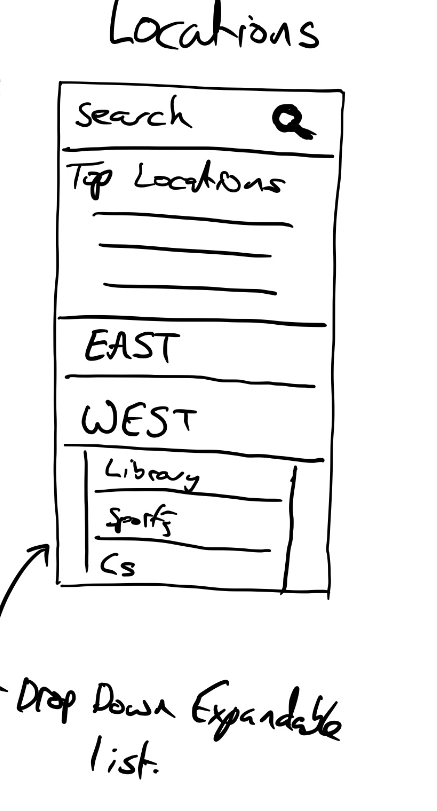 Locations
Search
Top Locations
EAST
WEST
Library
Sports
Cs
Drop Down Expandable
list.